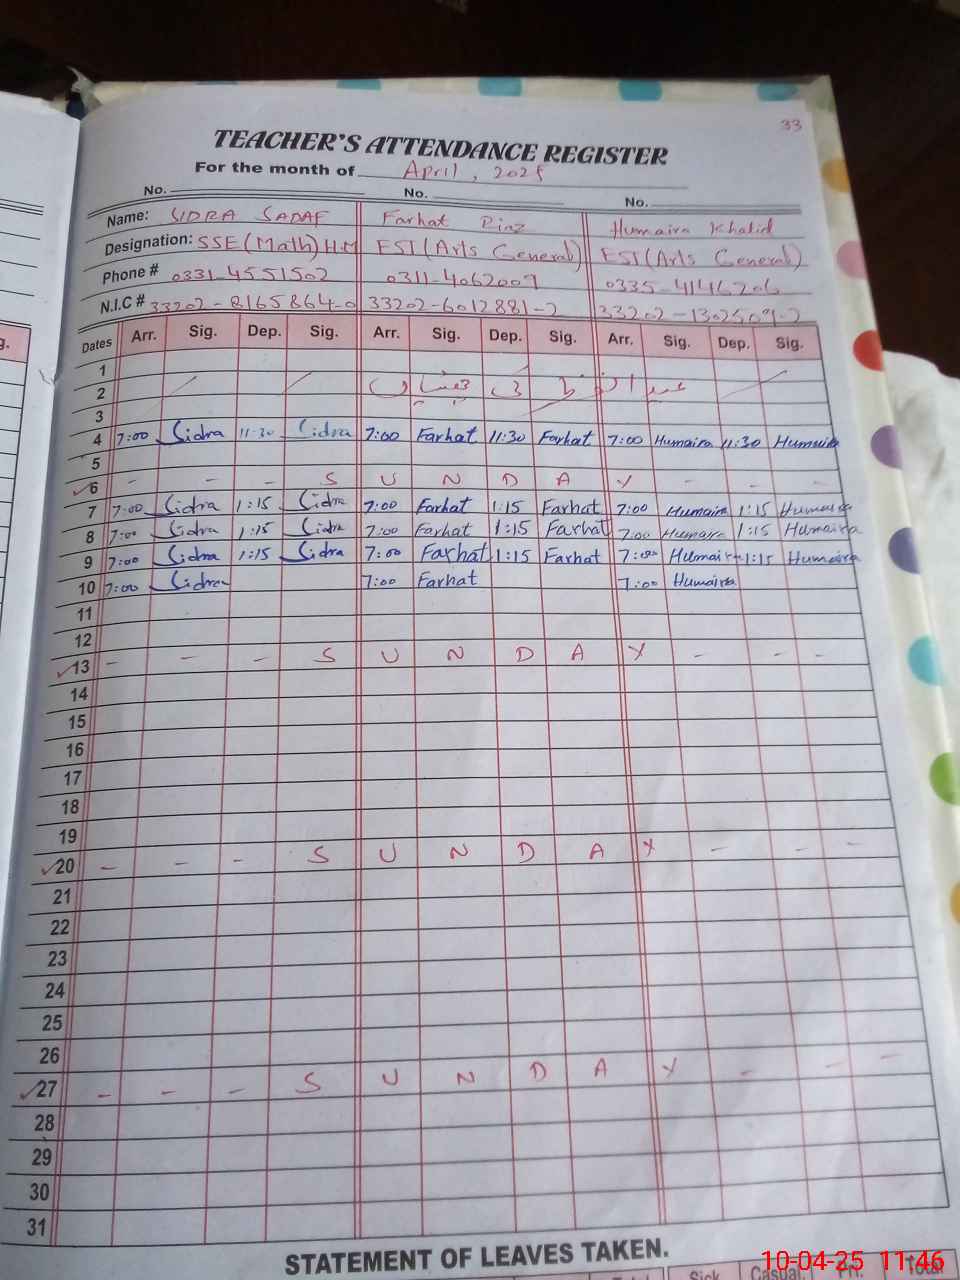 33
TEACHER'S ATTENDANCE REGISTER
For the month of April, 2025
No. No. No.
Name: SIDRA SADAF Farhat Riaz Humaira Khalid
Designation: SSE (Math) H.M EST (Arts General) EST (Arts General)
Phone # 0331-4551502 0311-4062009 0335-4146206
N.I.C # 33202-8165864-0 33202-6012881-2 33202-1302509-2
Dates Arr. Sig. Dep. Sig. Arr. Sig. Dep. Sig. Arr. Sig. Dep. Sig.
1
2 عید الفطر کی چھٹیاں
3
4 7:00 Sidra 11:30 Sidra 7:00 Farhat 11:30 Farhat 7:00 Humaira 11:30 Humaira
5
6 - - - S U N D A Y - - -
7 7:00 Sidra 1:15 Sidra 7:00 Farhat 1:15 Farhat 7:00 Humaira 1:15 Humaira
8 7:00 Sidra 1:15 Sidra 7:00 Farhat 1:15 Farhat 7:00 Humaira 1:15 Humaira
9 7:00 Sidra 1:15 Sidra 7:00 Farhat 1:15 Farhat 7:00 Humaira 1:15 Humaira
10 7:00 Sidra 7:00 Farhat 7:00 Humaira
11
12
13 - - - S U N D A Y - - -
14
15
16
17
18
19
20 - - - S U N D A Y - - -
21
22
23
24
25
26
27 - - - S U N D A Y - - -
28
29
30
31
STATEMENT OF LEAVES TAKEN.
Sick Casual Total
10-04-25 11:46